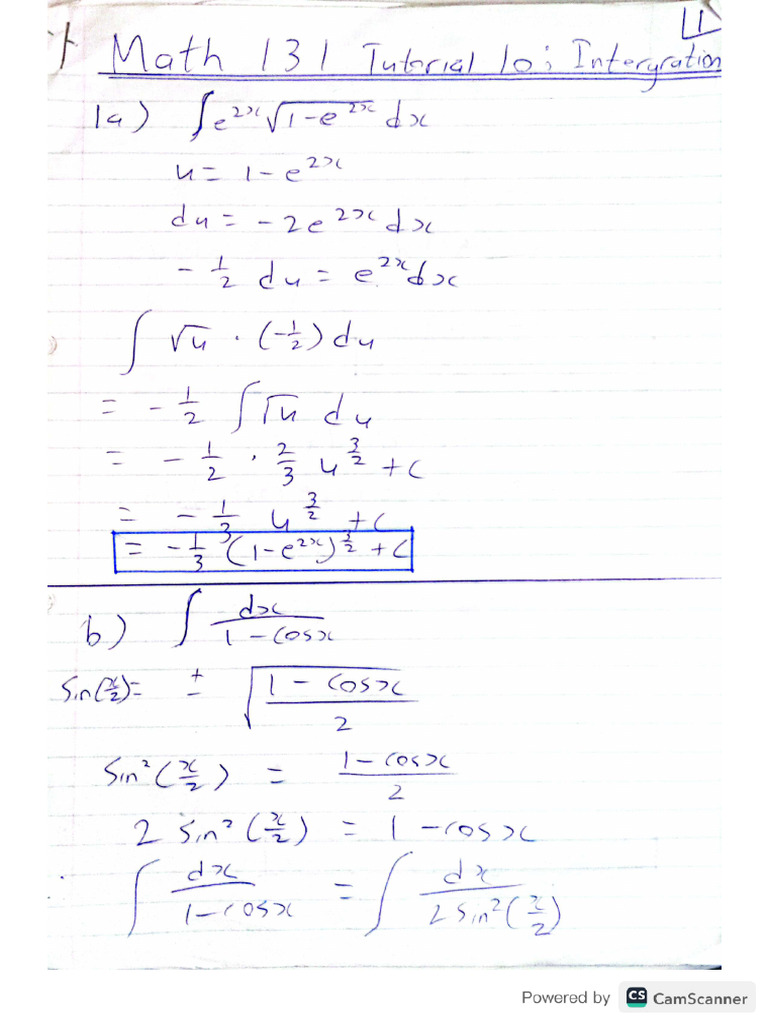 11
Math 131 Tutorial 10; Intergration
1a) ∫e^{2x}√(1-e^{2x}) dx
u = 1-e^{2x}
du = -2e^{2x} dx
-1/2 du = e^{2x}dx
∫ √u · (-1/2) du
= -1/2 ∫√u du
= -1/2 · 2/3 u^{3/2} + C
= -1/3 u^{3/2} + C
= -1/3 (1-e^{2x})^{3/2} + C
b) ∫ dx/(1-cosx)
Sin(x/2)= ± √((1-cosx)/2)
Sin²(x/2) = (1-cosx)/2
2 Sin²(x/2) = 1-cosx
∫ dx/(1-cosx) = ∫ dx/(2Sin²(x/2))
Powered by CS CamScanner